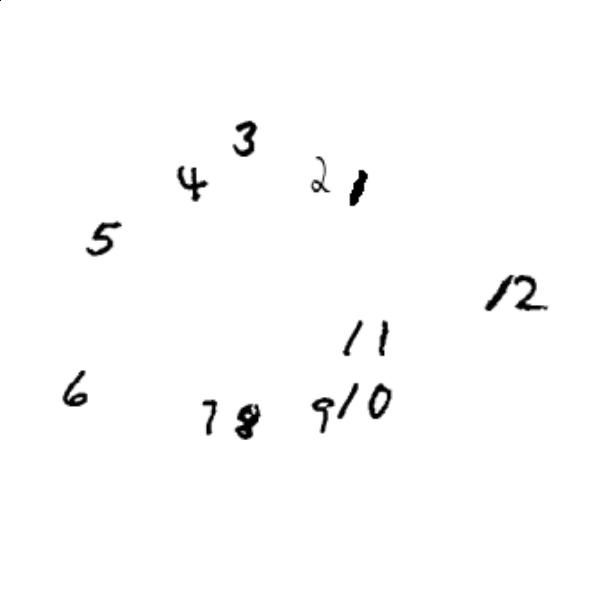 3
4 2 1
5
12
11
6 7 8 9 10